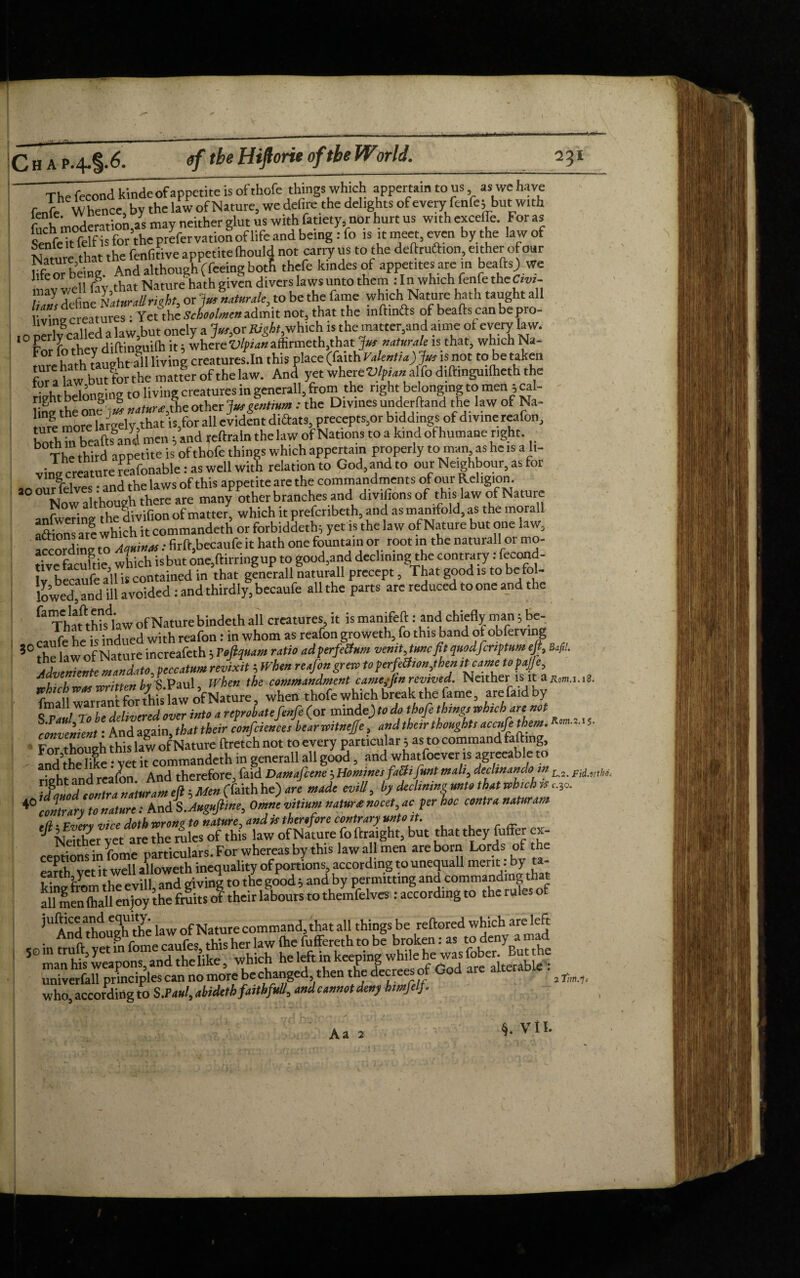 CHAP.4.§.6. of the Hiſtorie of the World. 231
The ſecond kinde of appetite is of thoſe things which appertain to us, as we have
ſenſe. Whence, by the law of Nature, we deſire the delights of every ſenſe; but with
ſuch moderation, as may neither glut us with ſatiety, nor hurt us with exceſſe. For as
Senſe it ſelf is for the preſervation of life and being: ſo is it meet, even by the law of
Nature, that the ſenſitive appetite ſhould not carry us to the deſtruction, either of our
life or being. And although (ſeeing both theſe kindes of appetites are in beaſts) we
may well ſay, that Nature hath given divers laws unto them: In which ſenſe the Civi-
lians define Naturall right, or Jus naturale, to be the ſame which Nature hath taught all
living creatures: Yet the Schoolmen admit not, that the inſtincts of beaſts can be pro-
10 perly called a law, but onely a Jus, or Right, which is the matter, and aime of every law.
For ſo they diſtinguiſh it; where Vlpian affirmeth, that Jus naturale is that, which Na-
ture hath taught all living creatures. In this place (ſaith Valentia) Jus is not to be taken
for a law, but for the matter of the law. And yet where Vlpian alſo diſtinguiſheth the
right belonging to living creatures in generall, from the right belonging to men; cal-
ling the one jus naturæ, the other Jus gentium: the Divines underſtand the law of Na-
ture more largely, that is, for all evident dictats, precepts, or biddings of divine reaſon,
both in beaſts and men; and reſtrain the law of Nations to a kind of humane right.
The third appetite is of thoſe things which appertain properly to man, as he is a li-
ving creature reaſonable: as well with relation to God, and to our Neighbour, as for
20 our ſelves: and the laws of this appetite are the commandments of our Religion.
Now although there are many other branches and diviſions of this law of Nature
anſwering the diviſion of matter, which it preſcribeth, and as manifold, as the morall
actions are which it commandeth or forbiddeth; yet is the law of Nature but one law,
according to Aquinas: firſt, becauſe it hath one fountain or root in the naturall or mo-
tive facultie, which is but one, ſtirring up to good, and declining the contrary: ſecond-
ly, becauſe all is contained in that generall naturall precept, That good is to be fol-
lowed, and ill avoided: and thirdly, becauſe all the parts are reduced to one and the
ſame laſt end.
That this law of Nature bindeth all creatures, it is manifeſt: and chiefly man; be-
30 cauſe he is indued with reaſon: in whom as reaſon groweth, ſo this band of obſerving
the law of Nature increaſeth; Poſtquam ratio ad perfectum venit, tunc fit quod ſcriptum eſt, Baſil.
Adveniente mandato, peccatum revixit; When reaſon grew to perfection, then it came to paſſe,
which was written by S.Paul, When the commandment came, ſin revived. Neither is it a Rom.1.18.
ſmall warrant for this law of Nature, when thoſe which break the ſame, are ſaid by
S.Paul, To be delivered over into a reprobate ſenſe (or minde) to do thoſe things which are not
convenient: And again, that their conſciences bear witneſſe, and their thoughts accuſe them. Rom.2.15.
For, though this law of Nature ſtretch not to every particular; as to command faſting,
and the like: yet it commandeth in generall all good, and whatſoever is agreeable to
right and reaſon. And therefore, ſaid Damaſcene; Homines facti ſunt mali, declinando in L.2. Fid.
id quod contra naturam eſt; Men (ſaith he) are made evill, by declining unto that which is c.30.
40 contrary to nature: And S.Auguſtine, Omne vitium naturæ nocet, ac per hoc contra naturam
eſt; Every vice doth wrong to nature, and is therefore contrary unto it.
Neither yet are the rules of this law of Nature ſo ſtraight, but that they ſuffer ex-
ceptions in ſome particulars. For whereas by this law all men are born Lords of the
earth, yet it well alloweth inequality of portions, according to unequall merit: by ta-
king from the evill, and giving to the good; and by permitting and commanding that
all men ſhall enjoy the fruits of their labours to themſelves: according to the rules of
juſtice and equity.
And though the law of Nature command, that all things be reſtored which are left
50 in truſt, yet in ſome cauſes, this her law ſhe ſuffereth to be broken: as to deny a mad
man his weapons, and the like, which he left in keeping while he was ſober. But the
univerſall principles can no more be changed, then the decrees of God are alterable:
who, according to S.Paul, abideth faithfull, and cannot deny himſelf. 2 Tim.
Aa 2 §. VII.